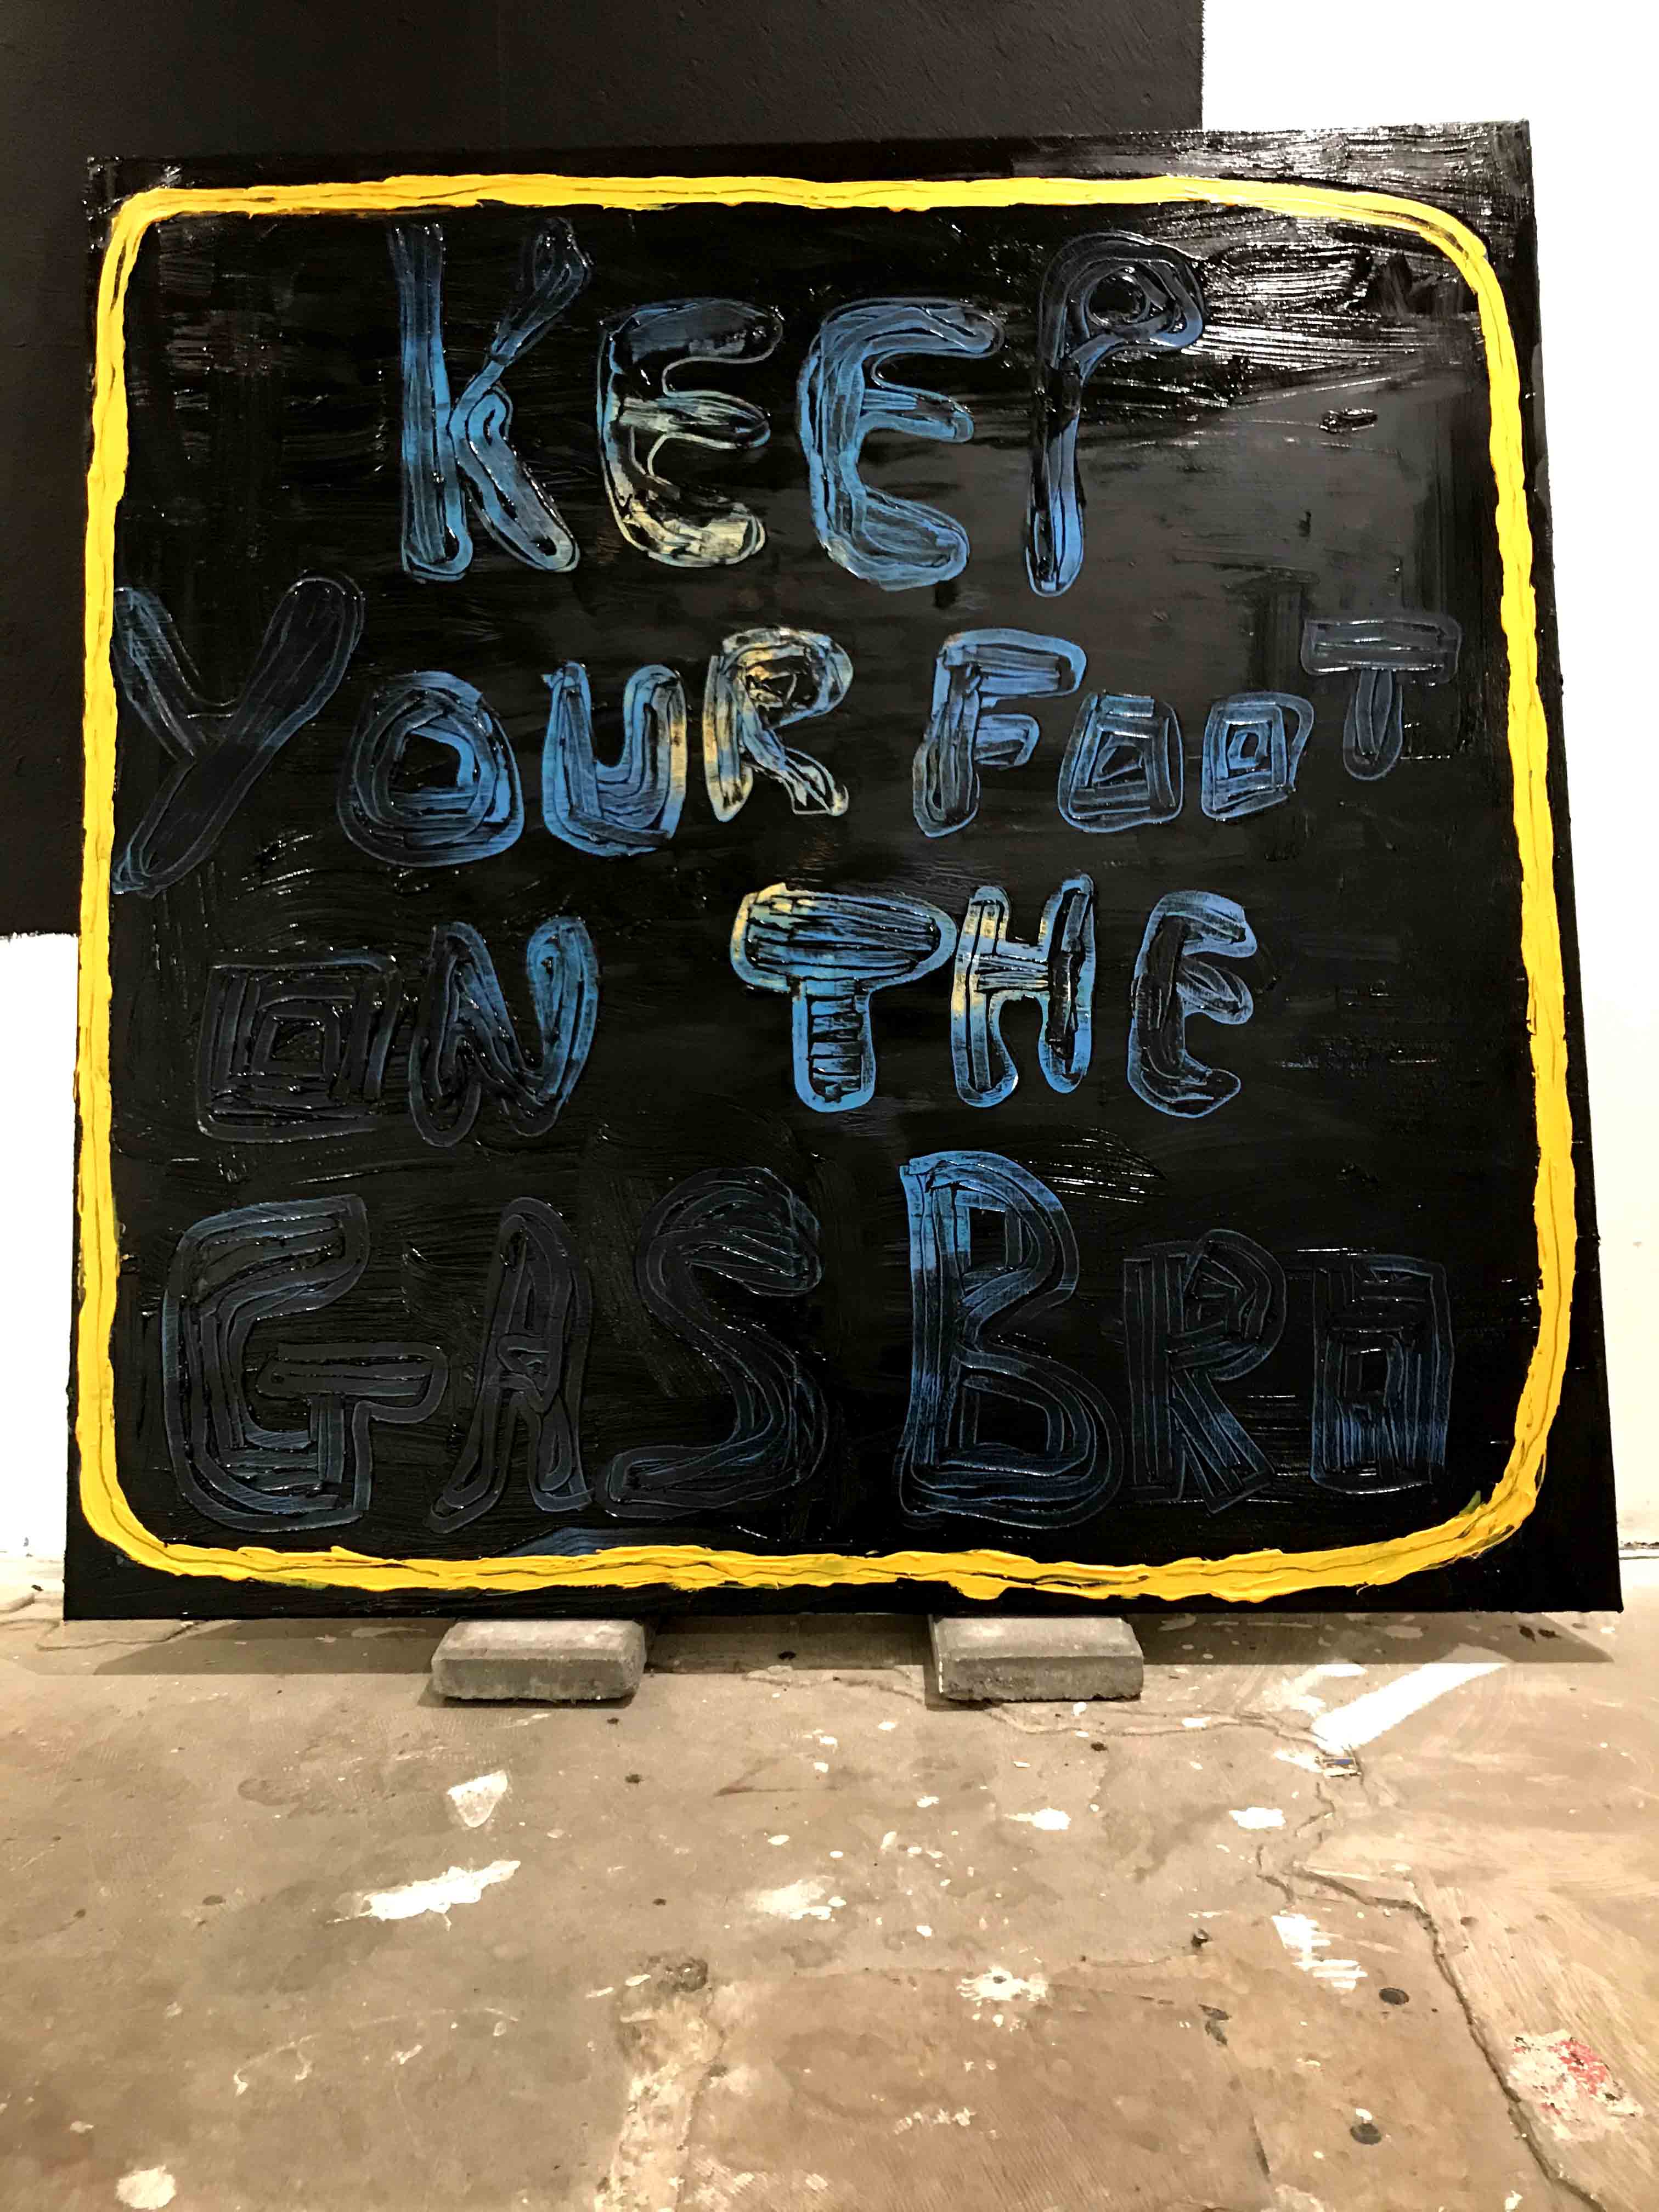 KEEP
YOUR FOOT
ON THE
GAS BRO